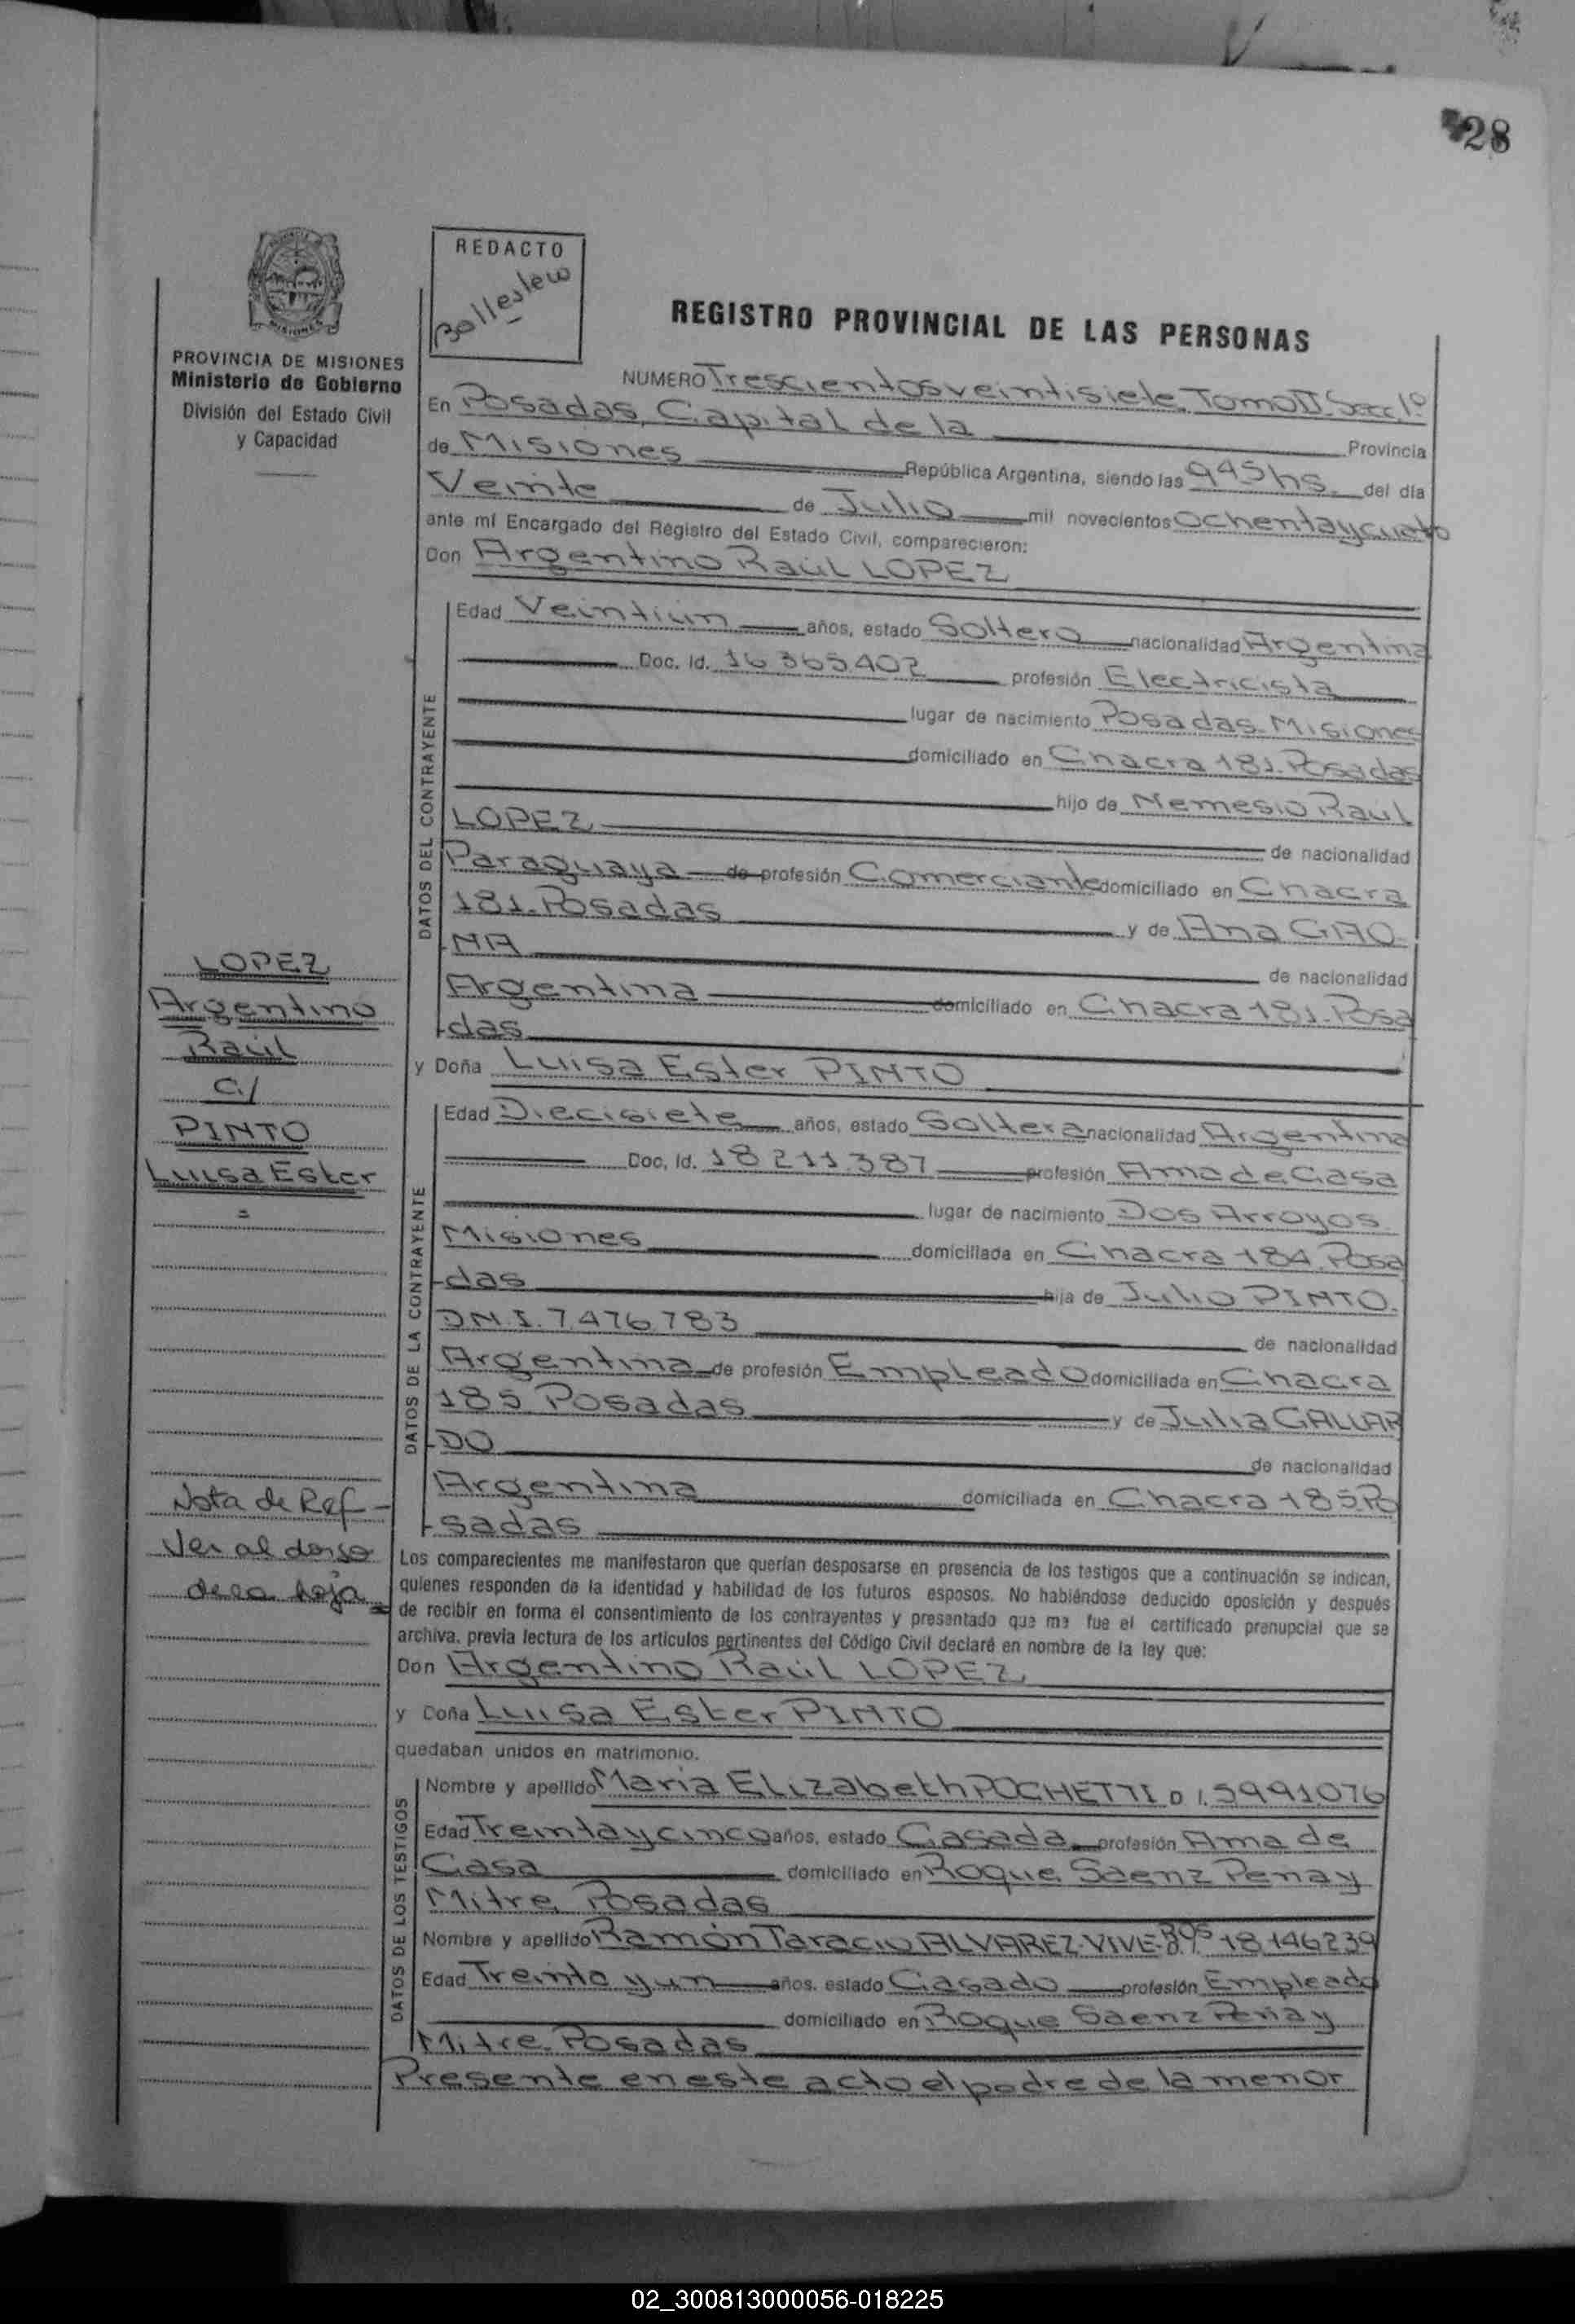 28
REDACTO
PROVINCIA DE MISIONES
Ministerio de Gobierno
División del Estado Civil
y Capacidad
REGISTRO PROVINCIAL DE LAS PERSONAS
NUMERO Trescientos veintisiete. Tomo II. Secc 1º
En Posadas, Capital de la Provincia
de Misiones República Argentina, siendo las 9 45 hs. del día
Veinte de Julio mil novecientos ochenta y cuatro
ante mí Encargado del Registro del Estado Civil, comparecieron:
Don Argentino Raúl LOPEZ
DATOS DEL CONTRAYENTE
Edad Veintiún años, estado Soltero nacionalidad Argentina
Doc. Id. 16 365 402 profesión Electricista
lugar de nacimiento Posadas. Misiones
domiciliado en Chacra 181. Posadas
hijo de Nemesio Raul
LOPEZ de nacionalidad
Paraguaya de profesión Comerciante domiciliado en Chacra
181. Posadas y de Ana GAO-
-NA de nacionalidad
Argentina domiciliado en Chacra 181. Posa
-das
LOPEZ
Argentino
Raúl
C/
PINTO
Luisa Ester
=
y Doña Luisa Ester PINTO
DATOS DE LA CONTRAYENTE
Edad Diecisiete años, estado Soltera nacionalidad Argentina
Doc. Id. 18 211.387 profesión Ama de Casa
lugar de nacimiento Dos Arroyos.
Misiones domiciliada en Chacra 184. Posa
-das hija de Julio PINTO.
D.N.I. 7.476.783 de nacionalidad
Argentina de profesión Empleado domiciliada en Chacra
185 Posadas y de Julia GALLAR
-DO de nacionalidad
Argentina domiciliada en Chacra 185. Po
-sadas
Nota de Ref-
Ver al dorso
de la hoja
Los comparecientes me manifestaron que querían desposarse en presencia de los testigos que a continuación se indican,
quienes responden de la identidad y habilidad de los futuros esposos. No habiéndose deducido oposición y después
de recibir en forma el consentimiento de los contrayentes y presentado que me fue el certificado prenupcial que se
archiva, previa lectura de los artículos pertinentes del Código Civil declaré en nombre de la ley que:
Don Argentino Raúl LOPEZ
y Doña Luisa Ester PINTO
quedaban unidos en matrimonio.
DATOS DE LOS TESTIGOS
Nombre y apellido Maria Elizabeth POCHETTI D I. 5991076
Edad Treinta y cinco años, estado Casada profesión Ama de
Casa domiciliado en Roque Saenz Pena y
Mitre Posadas
Nombre y apellido Ramón Taracio ALVAREZ-VIVE-ROS 18 146239
Edad Treinta y un años. estado Casado profesión Empleado
domiciliado en Roque Saenz Peña y
Mitre. Posadas
Presente en este acto el padre de la menor
02_300813000056-018225